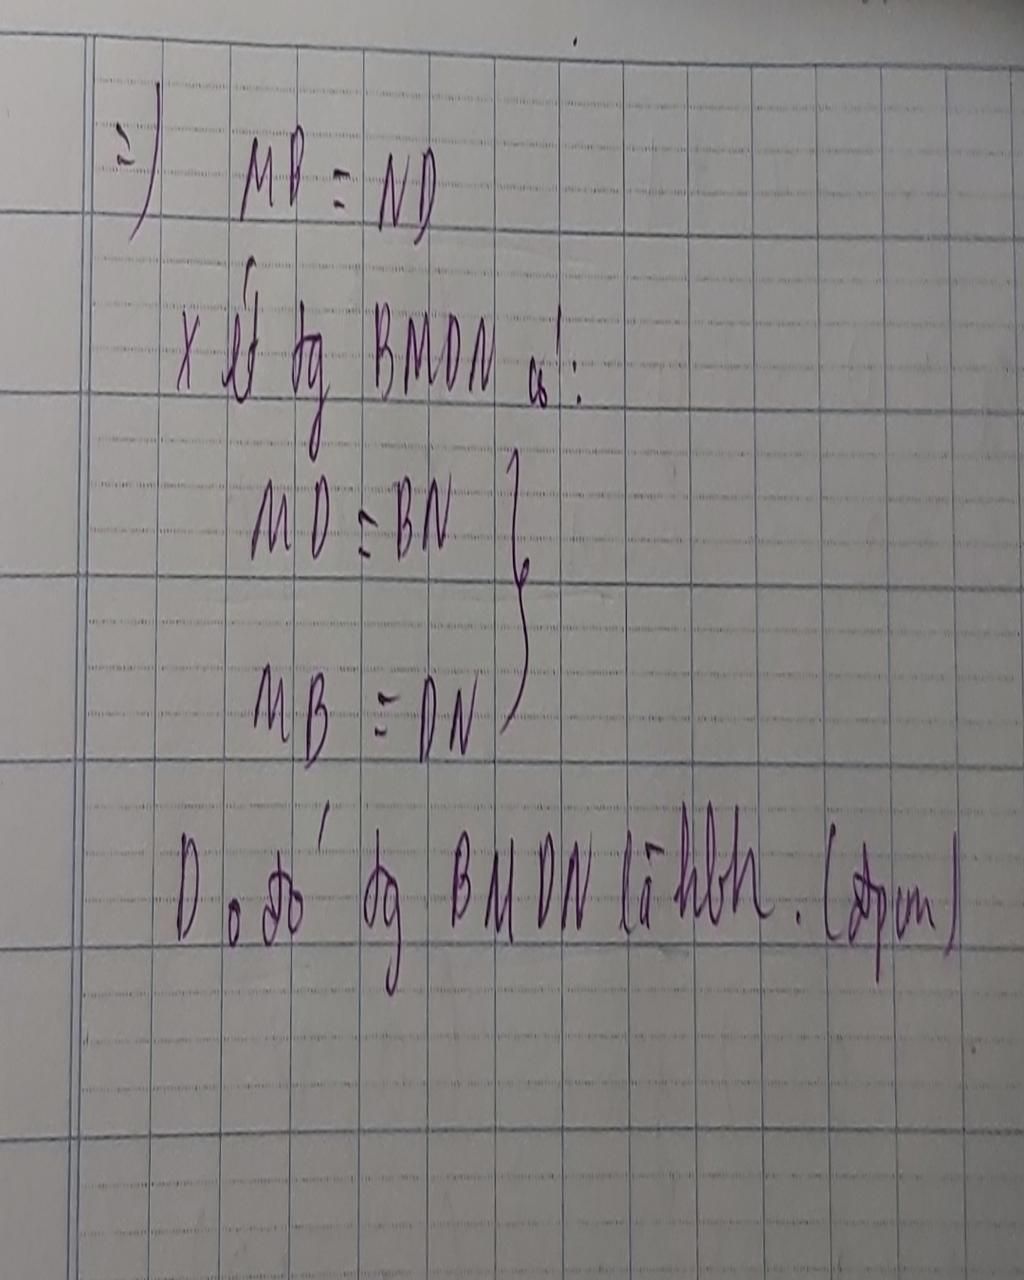 =) MB = ND
Xét tg BMDN có:
MD = BN }
MB = DN
Do đó tg BMDN là hbh. (đpcm)